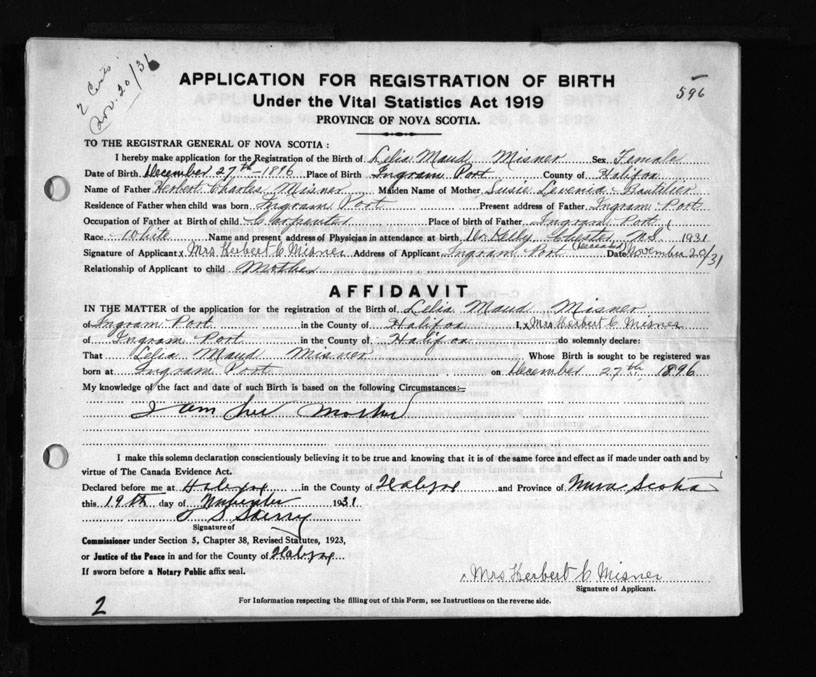 2 Certs.
Nov. 20/31
596
APPLICATION FOR REGISTRATION OF BIRTH
Under the Vital Statistics Act 1919
PROVINCE OF NOVA SCOTIA.
TO THE REGISTRAR GENERAL OF NOVA SCOTIA:
I hereby make application for the Registration of the Birth of Lelia Maud Misner Sex Female
Date of Birth December 27th - 1896 Place of Birth Ingram Port County of Halifax
Name of Father Herbert Charles Misner Maiden Name of Mother Susie Levenia Boutilier
Residence of Father when child was born Ingram Port Present address of Father Ingram Port
Occupation of Father at Birth of child Carpenter Place of birth of Father Ingram Port
Race White Name and present address of Physician in attendance at birth Dr. Kelly Chester N.S. 1931
(deceased)
Signature of Applicant x Mrs Herbert C Misner Address of Applicant Ingram Port Date November 20/31
Relationship of Applicant to child Mother
AFFIDAVIT
IN THE MATTER of the application for the registration of the Birth of Lelia Maud Misner
of Ingram Port in the County of Halifax I, x Mrs Herbert C Misner
of Ingram Port in the County of Halifax do solemnly declare:
That Lelia Maud Misner Whose Birth is sought to be registered was
born at Ingram Port on December 27th 1896
My knowledge of the fact and date of such Birth is based on the following Circumstances:—
I am her Mother
I make this solemn declaration conscientiously believing it to be true and knowing that it is of the same force and effect as if made under oath and by
virtue of The Canada Evidence Act.
Declared before me at Halifax in the County of Halifax and Province of Nova Scotia
this 19th day of November 1931
Signature of
Commissioner under Section 5, Chapter 38, Revised Statutes, 1923,
or Justice of the Peace in and for the County of Halifax
If sworn before a Notary Public affix seal.
x Mrs Herbert C Misner
Signature of Applicant.
For Information respecting the filling out of this Form, see Instructions on the reverse side.
2